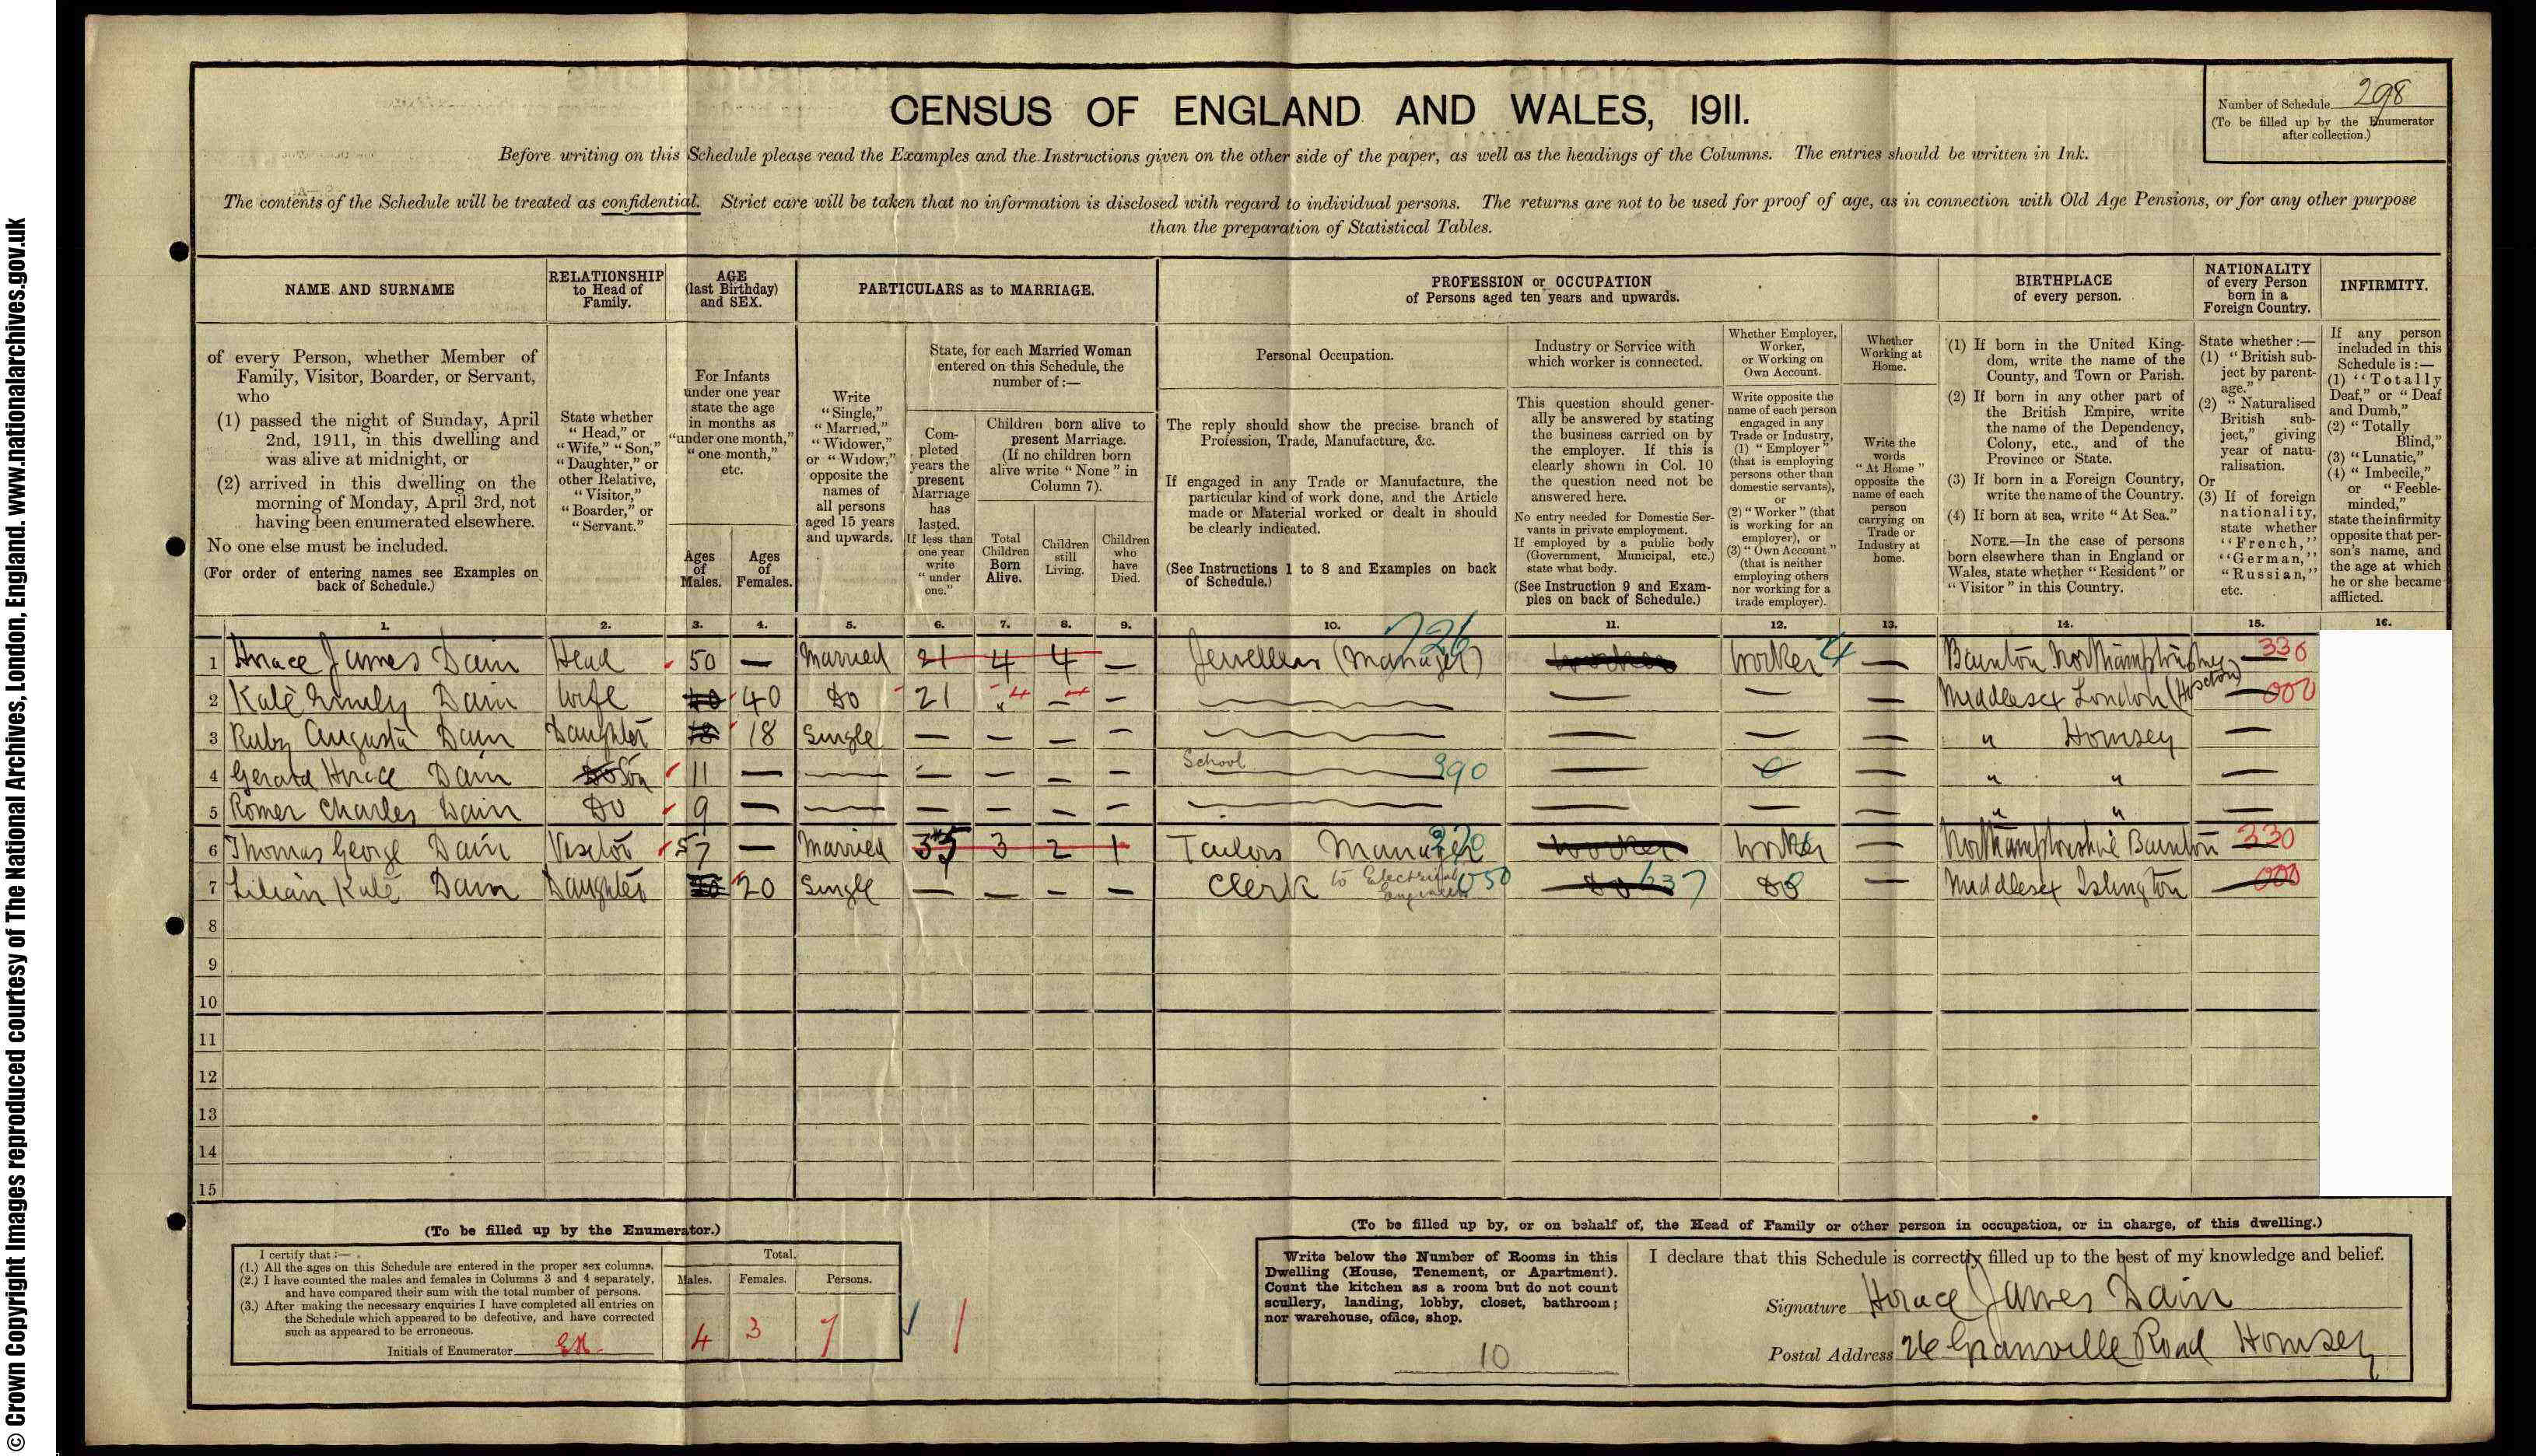 © Crown Copyright Images reproduced courtesy of The National Archives, London, England. www.nationalarchives.gov.uk
CENSUS OF ENGLAND AND WALES, 1911.
Number of Schedule 298
(To be filled up by the Enumerator
after collection.)
Before writing on this Schedule please read the Examples and the Instructions given on the other side of the paper, as well as the headings of the Columns. The entries should be written in Ink.
The contents of the Schedule will be treated as confidential. Strict care will be taken that no information is disclosed with regard to individual persons. The returns are not to be used for proof of age, as in connection with Old Age Pensions, or for any other purpose
than the preparation of Statistical Tables.
NAME AND SURNAME
of every Person, whether Member of
Family, Visitor, Boarder, or Servant,
who
(1) passed the night of Sunday, April
2nd, 1911, in this dwelling and
was alive at midnight, or
(2) arrived in this dwelling on the
morning of Monday, April 3rd, not
having been enumerated elsewhere.
No one else must be included.
(For order of entering names see Examples on
back of Schedule.)
RELATIONSHIP
to Head of
Family.
State whether
"Head," or
"Wife," "Son,"
"Daughter," or
other Relative,
"Visitor,"
"Boarder," or
"Servant."
AGE
(last Birthday)
and SEX.
For Infants
under one year
state the age
in months as
"under one month,"
"one month,"
etc.
Ages
of
Males.
Ages
of
Females.
PARTICULARS as to MARRIAGE.
Write
"Single,"
"Married,"
"Widower,"
or "Widow,"
opposite the
names of
all persons
aged 15 years
and upwards.
State, for each Married Woman
entered on this Schedule, the
number of :—
Com-
pleted
years the
present
Marriage
has
lasted.
If less than
one year
write
"under
one."
Children born alive to
present Marriage.
(If no children born
alive write "None" in
Column 7).
Total
Children
Born
Alive.
Children
still
Living.
Children
who
have
Died.
PROFESSION or OCCUPATION
of Persons aged ten years and upwards.
Personal Occupation.
The reply should show the precise branch of
Profession, Trade, Manufacture, &c.
If engaged in any Trade or Manufacture, the
particular kind of work done, and the Article
made or Material worked or dealt in should
be clearly indicated.
(See Instructions 1 to 8 and Examples on back
of Schedule.)
Industry or Service with
which worker is connected.
This question should gener-
ally be answered by stating
the business carried on by
the employer. If this is
clearly shown in Col. 10
the question need not be
answered here.
No entry needed for Domestic Ser-
vants in private employment.
If employed by a public body
(Government, Municipal, etc.)
state what body.
(See Instruction 9 and Exam-
ples on back of Schedule.)
Whether Employer,
Worker,
or Working on
Own Account.
Write opposite the
name of each person
engaged in any
Trade or Industry,
(1) "Employer"
(that is employing
persons other than
domestic servants),
or
(2) "Worker" (that
is working for an
employer), or
(3) "Own Account"
(that is neither
employing others
nor working for a
trade employer).
Whether
Working at
Home.
Write the
words
"At Home"
opposite the
name of each
person
carrying on
Trade or
Industry at
home.
BIRTHPLACE
of every person.
(1) If born in the United King-
dom, write the name of the
County, and Town or Parish.
(2) If born in any other part of
the British Empire, write
the name of the Dependency,
Colony, etc., and of the
Province or State.
(3) If born in a Foreign Country,
write the name of the Country.
(4) If born at sea, write "At Sea."
NOTE.—In the case of persons
born elsewhere than in England or
Wales, state whether "Resident" or
"Visitor" in this Country.
NATIONALITY
of every Person
born in a
Foreign Country.
State whether :—
(1) "British sub-
ject by parent-
age."
(2) "Naturalised
British sub-
ject," giving
year of natu-
ralisation.
Or
(3) If of foreign
nationality,
state whether
"French,"
"German,"
"Russian,"
etc.
INFIRMITY.
If any person
included in this
Schedule is :—
(1) "Totally
Deaf," or "Deaf
and Dumb,"
(2) "Totally
Blind,"
(3) "Lunatic,"
(4) "Imbecile,"
or "Feeble-
minded,"
state the infirmity
opposite that per-
son's name, and
the age at which
he or she became
afflicted.
1. 2. 3. 4. 5. 6. 7. 8. 9. 10. 11. 12. 13. 14. 15. 16.
1 Horace James Dain Head 50 — Married 21 4 4 — Jewellers (Manager) 726 Worker 4 — Bainton Northamptonshire 330
2 Kate Emily Dain Wife 40 40 Do 21 4 4 — — — — Middlesex London (Hoxton) 000
3 Ruby Augusta Dain Daughter 18 18 Single — — — — — — — " Hornsey —
4 Gerald Horace Dain Do Son 11 — — — — — School 390 — — — " " —
5 Romer Charles Dain Do 9 — — — — — — — — " " —
6 Thomas George Dain Visitor 57 — Married 35 3 2 1 Tailors Manager Worker — Northamptonshire Bainton 330
7 Lilian Kate Dain Daughter 20 20 Single — — — — Clerk to Electrical Engineer 050 Do 637 Do — Middlesex Islington 000
8
9
10
11
12
13
14
15
(To be filled up by the Enumerator.)
I certify that :—
(1.) All the ages on this Schedule are entered in the proper sex columns.
(2.) I have counted the males and females in Columns 3 and 4 separately,
and have compared their sum with the total number of persons.
(3.) After making the necessary enquiries I have completed all entries on
the Schedule which appeared to be defective, and have corrected
such as appeared to be erroneous.
Initials of Enumerator
Total.
Males. Females. Persons.
4 3 7
(To be filled up by, or on behalf of, the Head of Family or other person in occupation, or in charge, of this dwelling.)
Write below the Number of Rooms in this
Dwelling (House, Tenement, or Apartment).
Count the kitchen as a room but do not count
scullery, landing, lobby, closet, bathroom;
nor warehouse, office, shop.
10
I declare that this Schedule is correctly filled up to the best of my knowledge and belief.
Signature Horace James Dain
Postal Address 26 Granville Road Hornsey